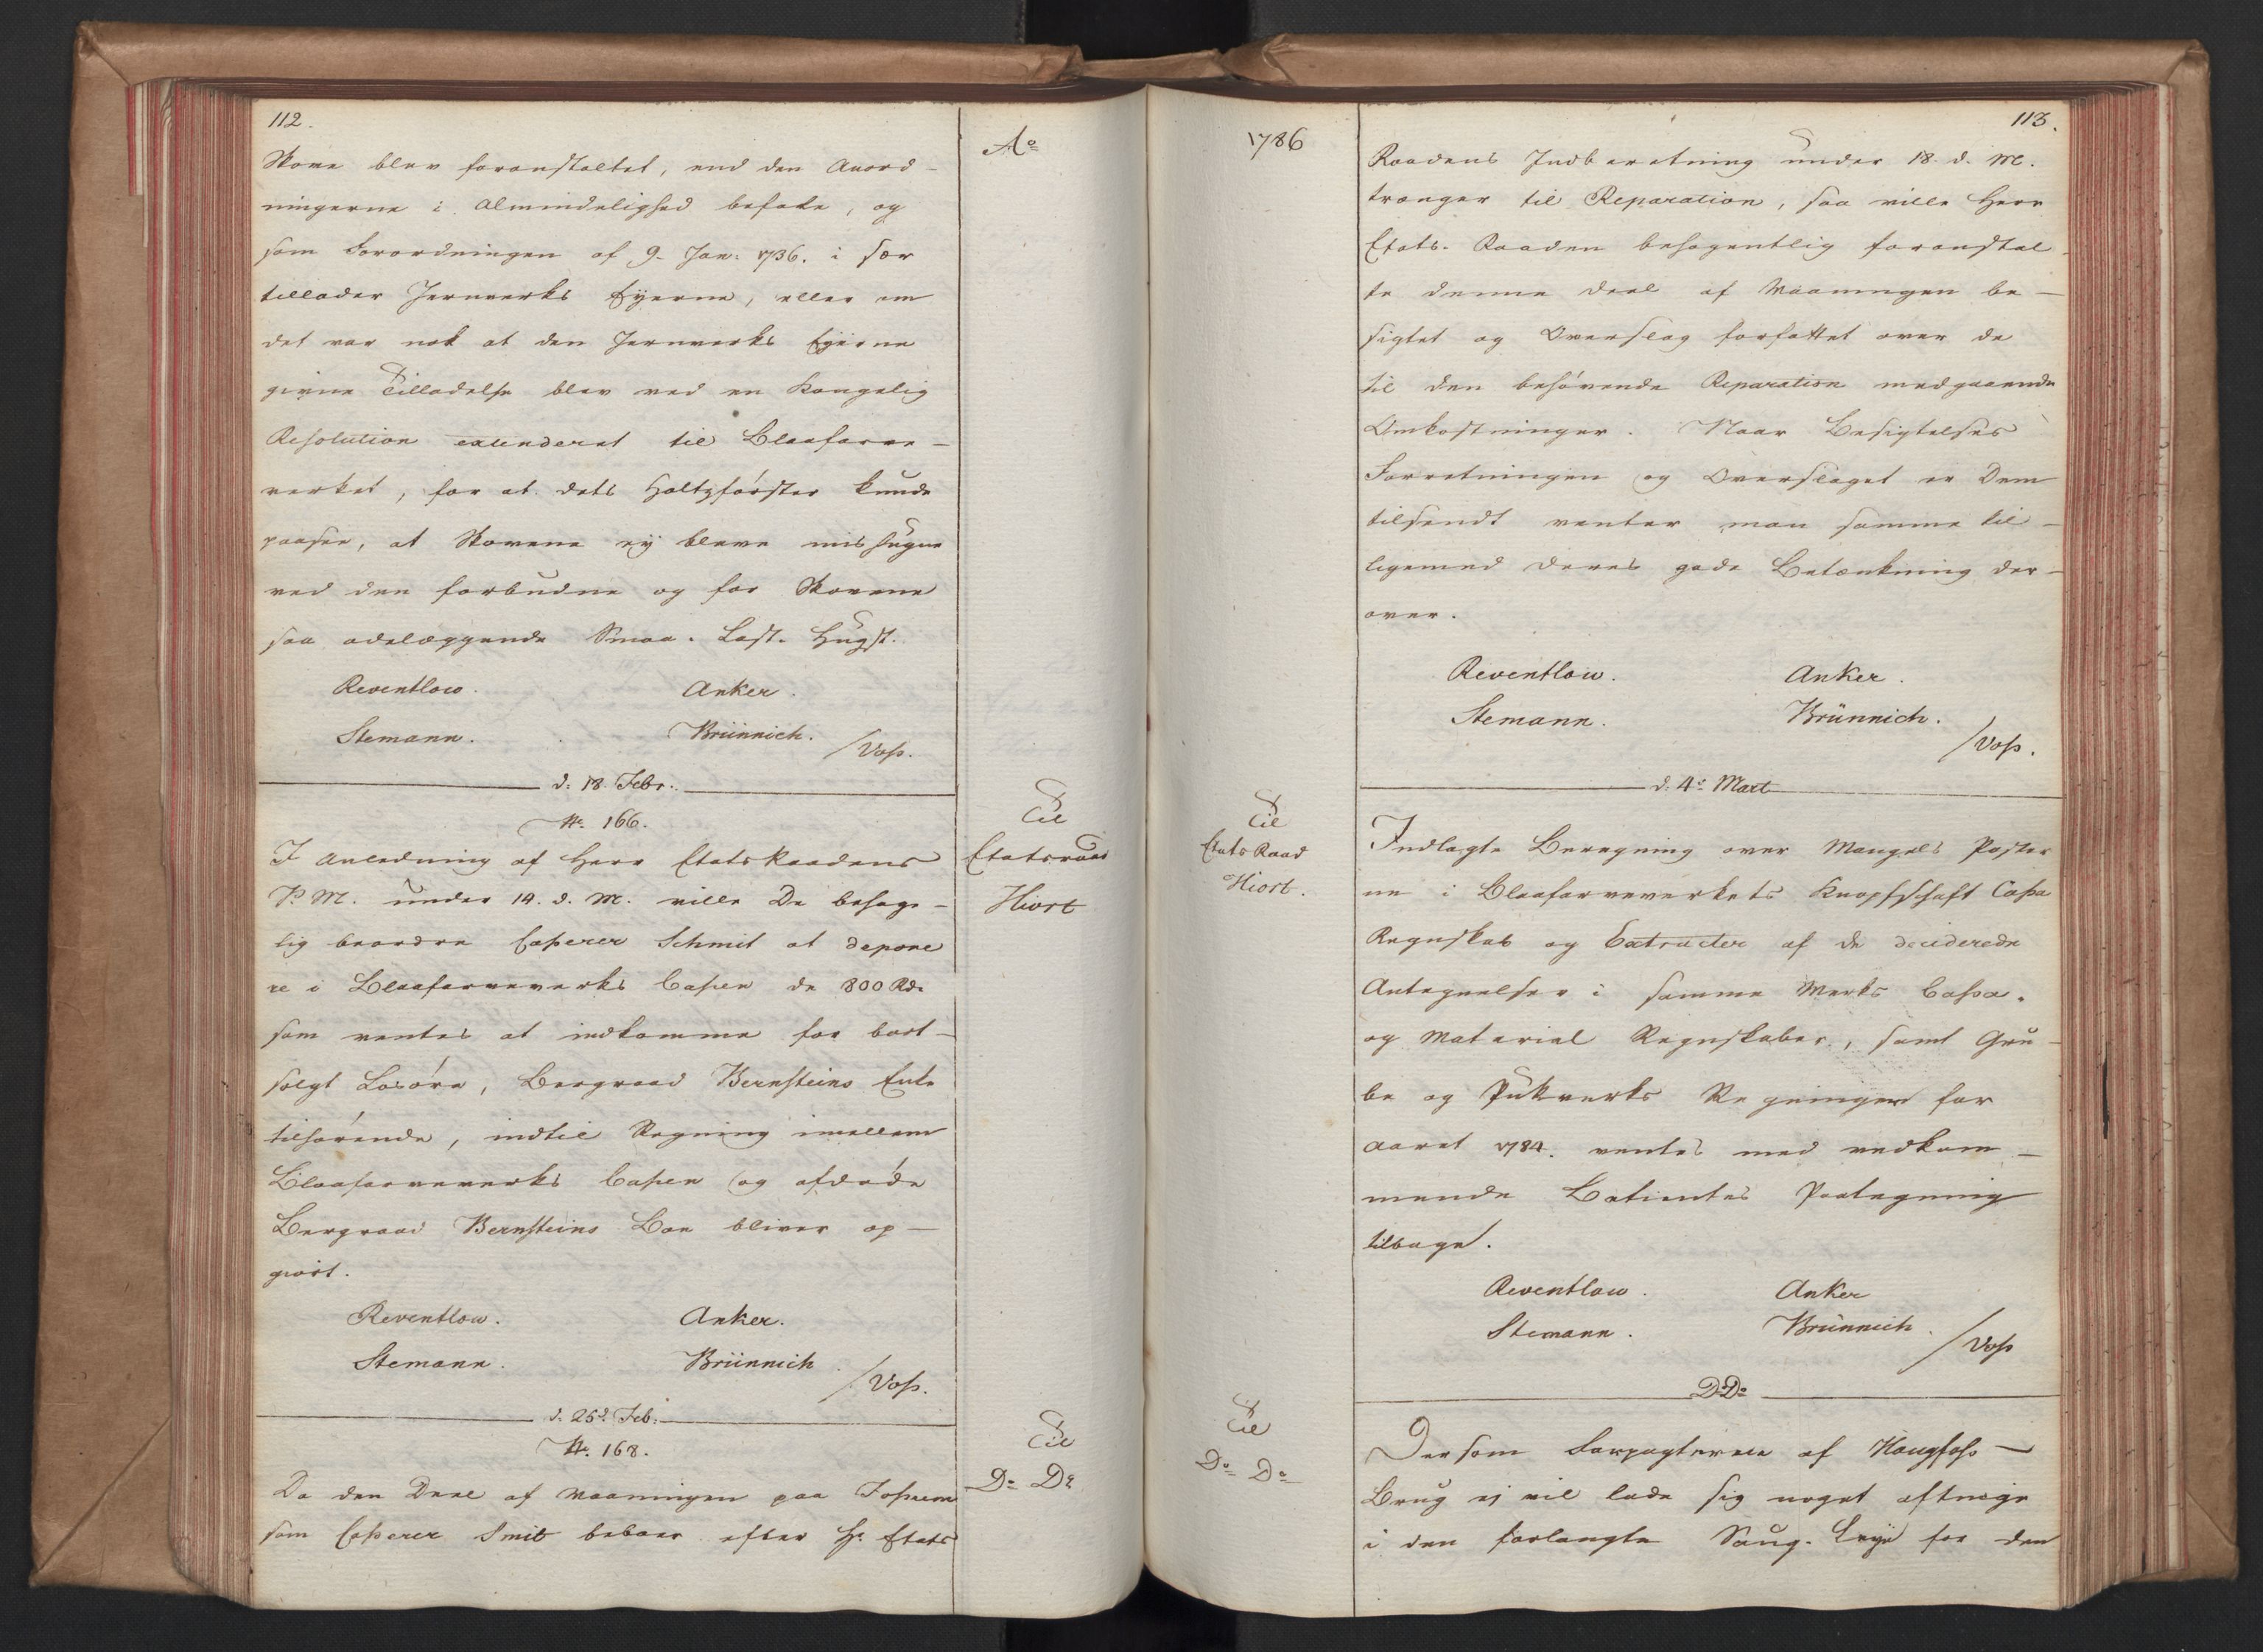 112.
Skove blev foranstaltet, end den Anord-
ningerne i Almindelighed befale, og
som Forordningen af 9. Jan: 1736. i sær
tillader Jernverks Eyerne, eller om
det var nok at den Jernverks Eyerne
givne Tilladelse blev ved en Kongelig
Resolution extenderet til Blaafarve-
verket, for at dets Holtzförster kunde
paasee, at Skovene ey bleve mishugne
ved den forbudne og for Skovene
saa ødelæggende Smaa-Last-Hugst.
Reventlow. Anker.
Stemann. Brünnich. /Voss.
d. 18. Febr.
No. 166.
I Anledning af Herr Etatsraadens
P.M. under 14. d. M. ville De behage-
lig beordre Casserer Schmit at depone
re i Blaafarveverks Cassen de 800 Rd.
som ventes at indkomme for bort-
solgt Løsøre, Bergraad Bernsteins Enke
tilhørende, indtil Regning imellem
Blaafarveverks Cassen og afdøde
Bergraad Bernsteins Boe bliver op-
giort.
Reventlow. Anker.
Stemann. Brünnich. /Voss.
d. 25d. Feb:
No. 168.
Da den Deel af Vaaningen paa Fossum
som Casserer Smit beboer efter Hr. Etats
Ao
Til
Etatsraad
Hiort
Til
Do Do
1786
Til
Etats Raad
Hiort.
Til
Do Do
113.
Raadens Indberetning under 18. d. M.
trænger til Reparation, saa ville Herr
Etats-Raaden behagentlig foranstal-
te denne Deel af Vaaningen be-
sigtet og Overslag forfattet over de
til den behøvende Reparation medgaaende
Omkostninger. Naar Besigtelses
Forretningen og Overslaget er Dem
tilsendt venter man samme til-
ligemed Deres gode Betænkning der-
over.
Reventlow. Anker.
Stemann. Brünnich. /Voss.
d. 4de Mart
Indlagte Beregning over Mangels Poster
ne i Blaafarveverkets Knapschaft Cassa
Regnskab og Extracter af de deciderede
Antegnelser i samme Verks Cassa-
og Material Regnskaber, samt Gru-
be og Pukverks Regninger for
Aaret 1784. ventes med vedkom-
mende Betientes Paategning
tilbage.
Reventlow. Anker
Stemann. Brünnich. /Voss
Do Do
Dersom Forpagterne af Haugfoss-
Brug ej vil lade sig noget aftinge
i den forlangte Saug-Leye for den